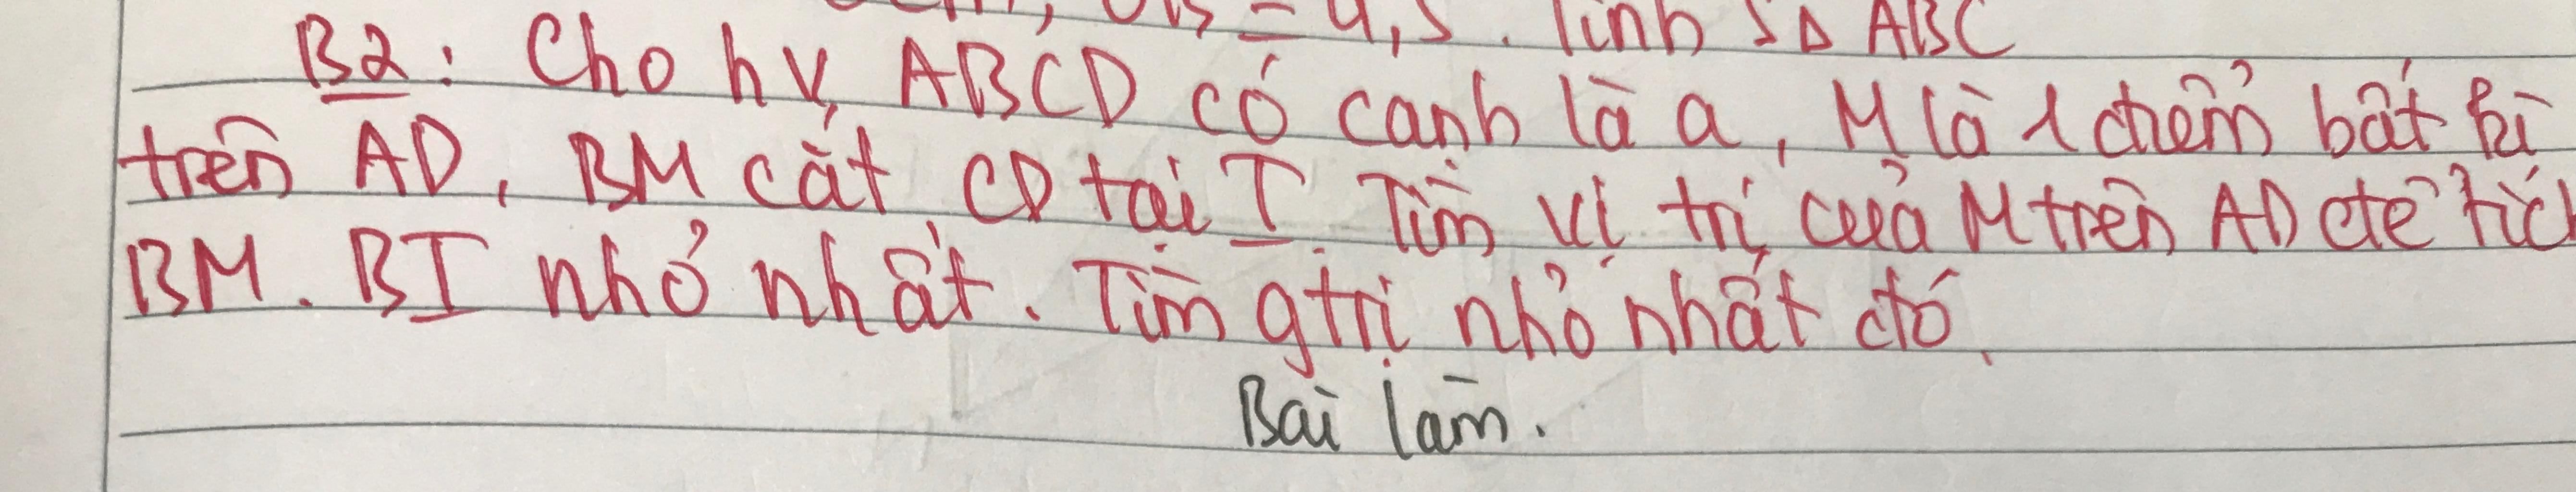 = 4,5. Tính S∆ ABC
B2: Cho hv ABCD có cạnh là a, M là 1 điểm bất kì
trên AD, BM cắt CD tại I. Tìm vị trí của M trên AD để tíc
BM. BI nhỏ nhất. Tìm gtrị nhỏ nhất đó.
Bài làm.